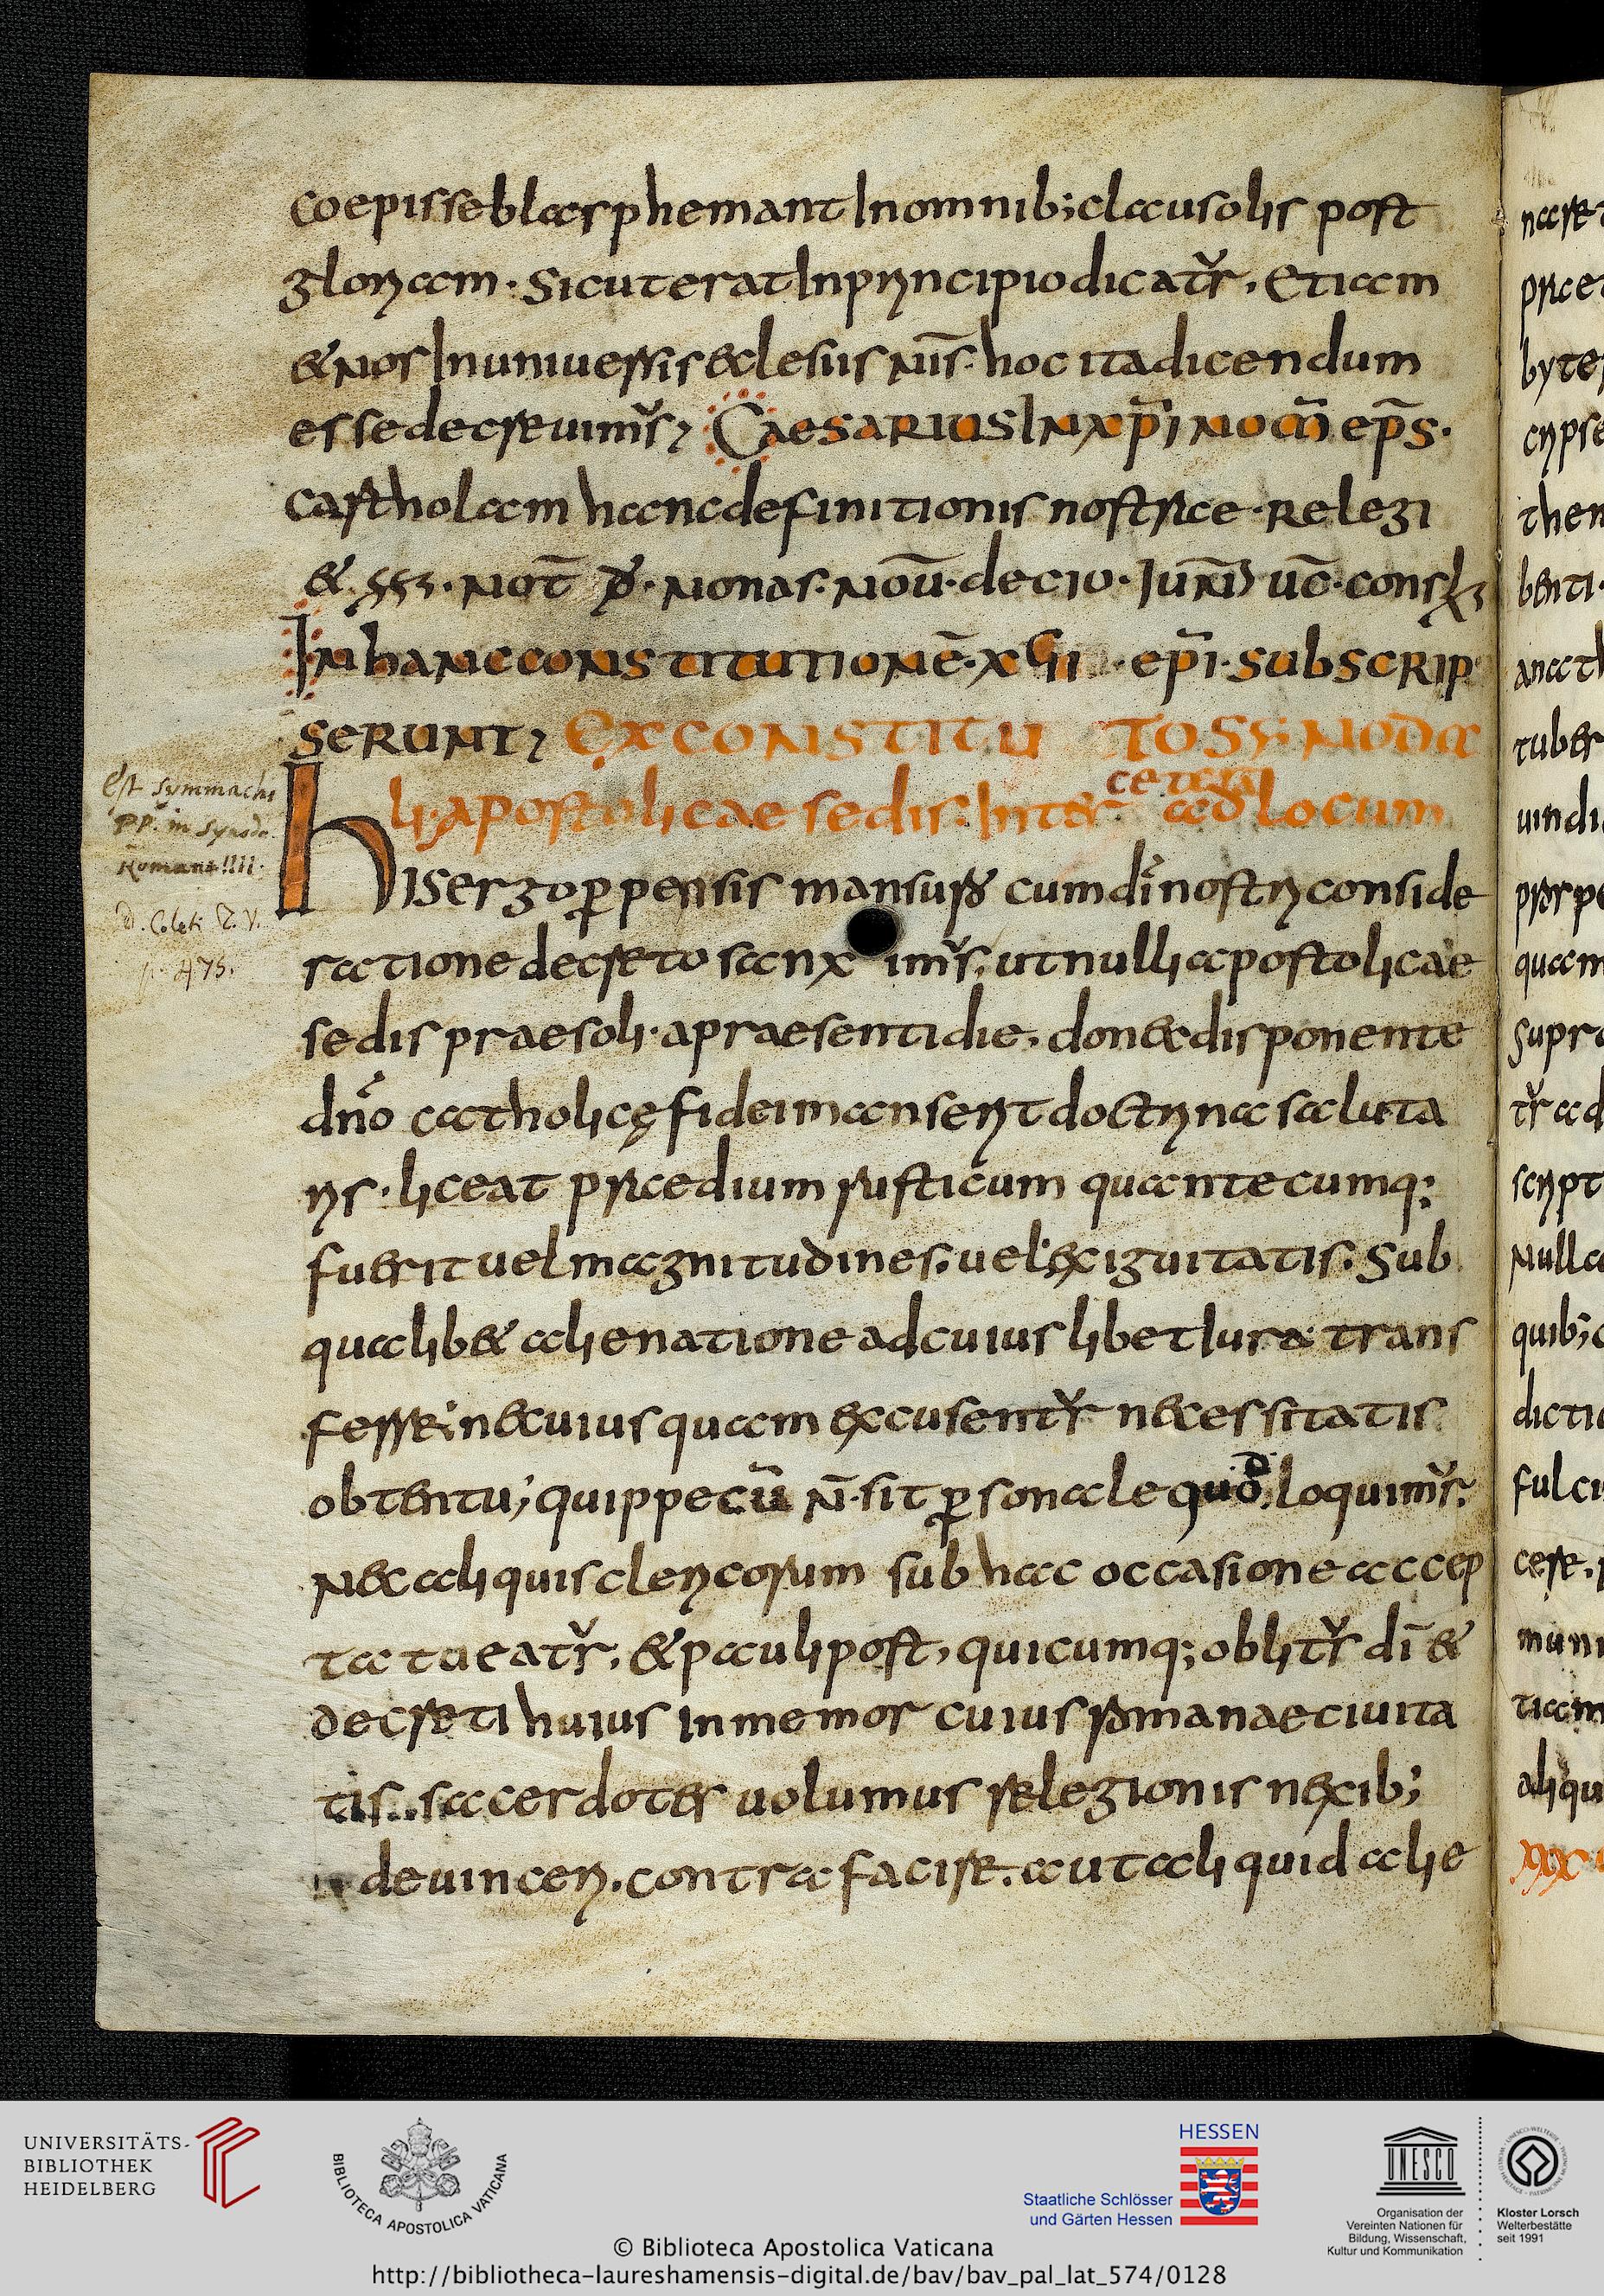 coepisse blasphemant In omnib; clausolis post
gloriam · sicut erat In principio dicatr̆ · Etiam
& nos In uniuersis ecclesiis nr̄s · hoc ita dicendum
esse decreuim̆s; Caesarius In xp̄i nom̄ ep̄s ·
cartholam hanc definitionis nostrae · Relegi
& sss · not̄ · nonas · nou̅ · decio · Iuñ uc̄ · cons
In hanc constitutionē · xuii · ep̄i · subscrip
serunt; Ex constitu to synoda
li · apostolicae sedis · Inter cetera ad locum
est Symmachi
PP. in Synodo
Romana IIII.
D. Coleti T. V.
p. 475.
His ergo perpensis mansuro cum dī nostri conside
ratione decreto sanx im̆s · ut nulli apostolicae
sedis praesoli · a praesenti die · donec disponente
dn̄o catholicę fidei manserit doctrina saluta
ris · liceat praedium rusticum quantecumq;
fuerit uel magnitudines · uel exiguitatis · Sub
qualib& alienatione ad cuius libet Iura trans
ferre; nec uius quam excusentr̆ necessitatis
obtentu; quippe cū n̄ · sit personale quod loquim̆s ·
Nec aliquis clericorum sub hac occasione accep
ta tueatr̆ · & pauli post, quicumq; oblitr̆ dī &
decreti huius inmemor cuius romanae ciuita
tis · sacerdotes uolumus relegionis nexib;
deuinceri · contra facire · aut aliquid alie
UNIVERSITÄTS-
BIBLIOTHEK
HEIDELBERG
BIBLIOTECA APOSTOLICA VATICANA
HESSEN
Staatliche Schlösser
und Gärten Hessen
UNESCO
Organisation der
Vereinten Nationen für
Bildung, Wissenschaft,
Kultur und Kommunikation
Kloster Lorsch
Welterbestätte
seit 1991
© Biblioteca Apostolica Vaticana
http://bibliotheca-laureshamensis-digital.de/bav/bav_pal_lat_574/0128